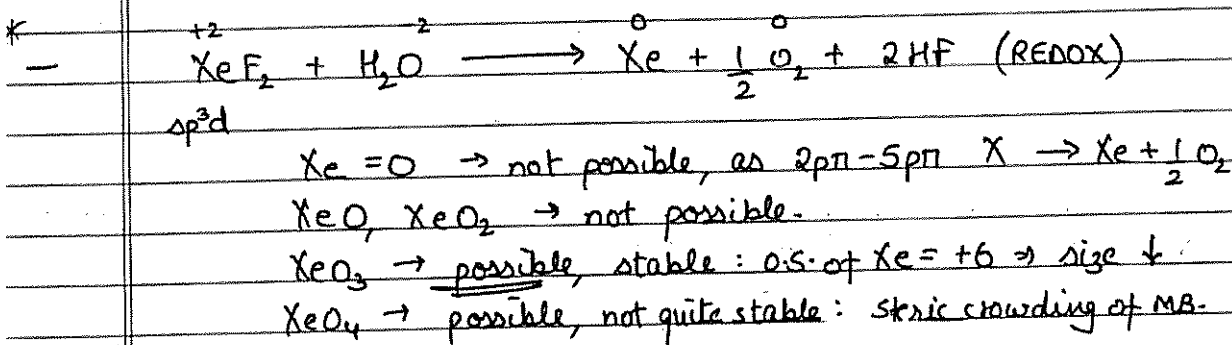 *
+2 -2 0 0
– XeF₂ + H₂O ⟶ Xe + 1/2 O₂ + 2HF (REDOX)
sp³d
Xe = O → not possible, as 2pπ-5pπ X → Xe + 1/2 O₂
XeO, XeO₂ → not possible.
XeO₃ → possible, stable : O.S. of Xe = +6 ⇒ size ↓.
XeO₄ → possible, not quite stable : steric crowding of MB.